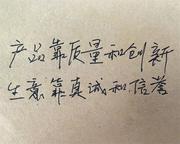 产品靠质量和创新
生意靠真诚和信誉